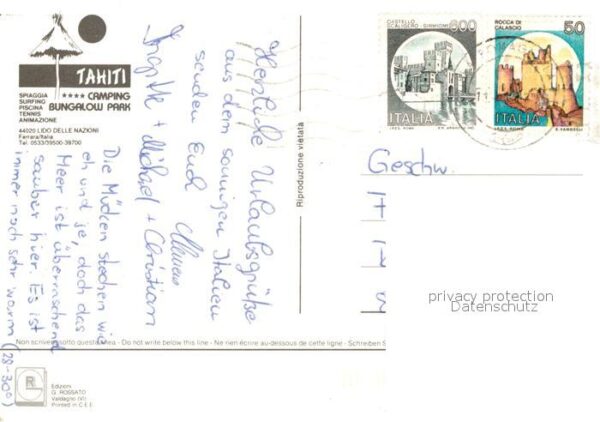 TAHITI
SPIAGGIA
SURFING
PISCINA
TENNIS
ANIMAZIONE
**** CAMPING
BUNGALOW PARK
44020 LIDO DELLE NAZIONI
Ferrara/Italia
Tel. 0533/39500-39700
Herzliche Urlaubsgrüße
aus dem sonnigen Italien
senden Euch
+ Michael + Christian
Die Mücken stechen wie
eh und je, doch das
Meer ist überraschend
sauber hier. Es ist
immer noch sehr warm (28-30°)
Riproduzione vietata
CASTELLO
SCALIGERO - SIRMIONE
600
ITALIA
I.P.Z.S. ROMA
ROCCA DI
CALASCIO
50
ITALIA
I.P.Z.S. ROMA
E. VANGELLI
Geschw.
privacy protection
Datenschutz
Non scrivere sotto questa linea - Do not write below this line - Ne rien écrire au-dessous de cette ligne - Schreiben S
R
Edizioni
G. ROSSATO
Valdagno (VI)
Printed in C.E.E.